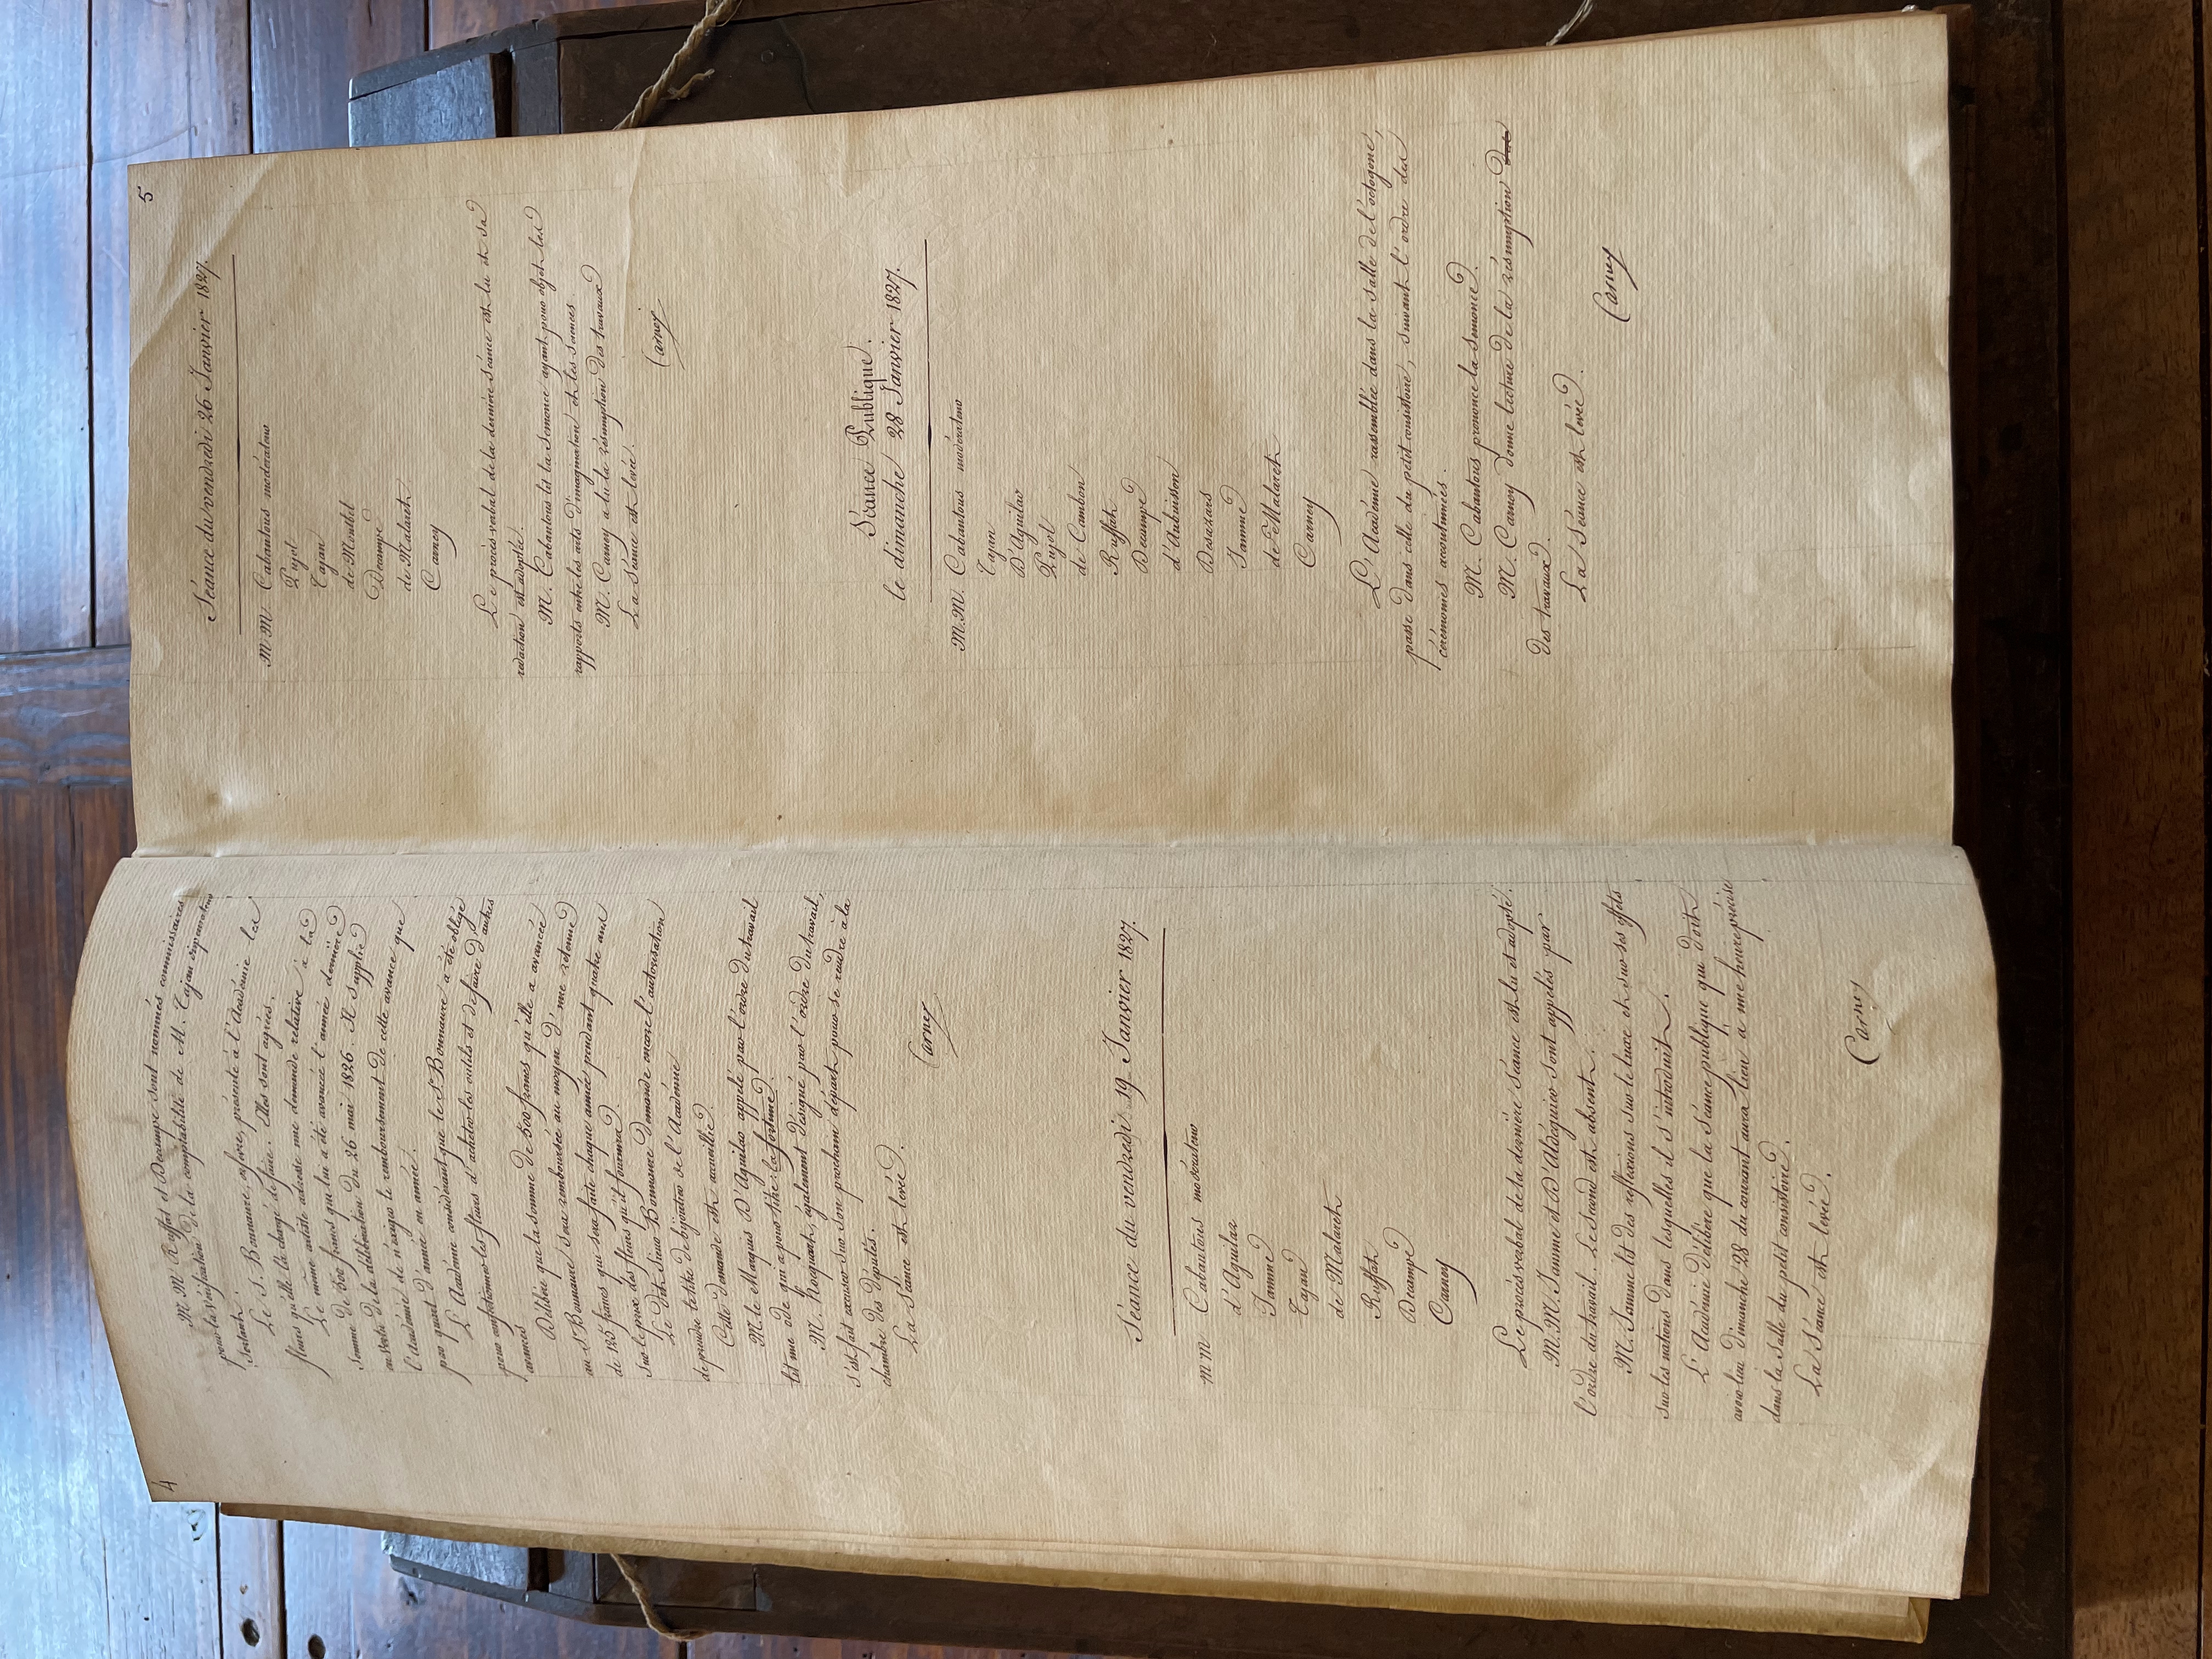 4
M M. Ruffat et Decampe sont nommés commissaires
pour la vérification de la comptabilité de M. Tajan
sortant.
Le S. Bonnaure, orfèvre, présente à l'Académie les
fleurs qu'elle l'a chargé de faire. Elles sont agréés.
Le même artiste adresse une demande relative à la
somme de 500 francs qui lui a été avancée l'année dernière
en vertu de la délibération du 26 mai 1826. Il supplie
l'académie de n'exiger le remboursement de cette avance que
par quart d'année en année.
L'Académie considérant que le Sr Bonnaure a été obligé
pour confectionner les fleurs d'acheter les outils et de faire d'autres
avances
Délibère que la somme de 500 francs qu'elle a avancée
au Sr Bonnaure sera remboursée au moyen d'une retenue
de 125 francs qui sera faite chaque année pendant quatre ans
sur le prix des fleurs qu'il fournira.
Le dit Sieur Bonnaure demande encore l'autorisation
de prendre le titre de bijoutier de l'Académie
Cette demande est accueillie.
M. le Marquis D'Aguilar appelé par l'ordre du travail
lit une ode qui a pour titre: la fortune.
M. Roquart, également désigné par l'ordre du travail,
s'est fait excuser sur son prochain départ pour se rendre à la
chambre des députés.
La séance est levée.
Carney
Séance du vendredi 19 Janvier 1827.
M M Cabantous modérateur
d'Aguilar
Jamme
Tajan
de Malaret
Ruffat
Decampe
Carney
Le procès verbal de la dernière séance est lu et adopté.
M. M. Jamme et D'Aldéguier sont appelés par
l'ordre du travail. Le second est absent.
M. Jamme lit des reflexions sur le luxe et sur ses effets
sur les nations dans lesquelles il s'introduit.
L'Académie délibère que la séance publique qui doit
avoir lieu Dimanche 28 du courant aura lieu à une heure précise
dans la salle du petit consistoire.
La séance est levée.
Carney
5
Séance du vendredi 26 Janvier 1827.
M M. Cabantous modérateur
Pujol
Tajan
de Montbel
Decampe
de Malaret
Carney
Le procès verbal de la dernière séance est lu et sa
rédaction est adoptée.
M. Cabantous lit la semonce ayant pour objet les
rapports entre les arts d'imagination et les sciences.
M. Carney a lu la résumption des travaux
La séance est levée.
Carney
Séance Publique.
le dimanche 28 Janvier 1827.
M. M. Cabantous modérateur
Tajan
D'Aguilar
Pujol
de Cambon
Ruffat
Decampe
d'Aubuisson
Desazars
Jamme
de Malaret
Carney
L'Académie rassemblée dans la salle de l'octogone,
passe dans celle du petit consistoire, suivant l'ordre des
cérémonies accoutumées.
M. Cabantous prononce la semonce.
M. Carney donne lecture de la résumption
des travaux.
La séance est levée.
Carney